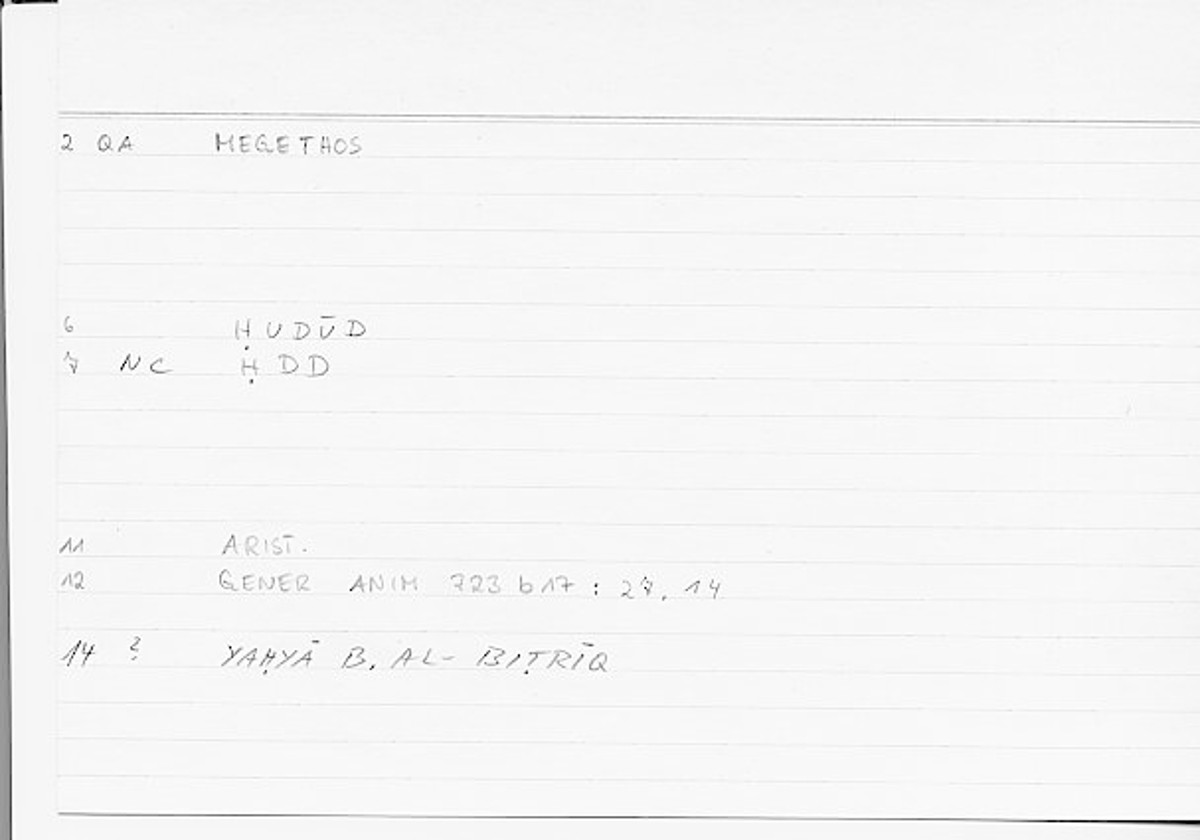 2 QA MEGETHOS
6 ḤUDŪD
7 NC ḤDD
11 ARIST.
12 GENER ANIM 723 b17 : 27, 14
14 ? YAḤYĀ B. AL-BIṬRĪQ